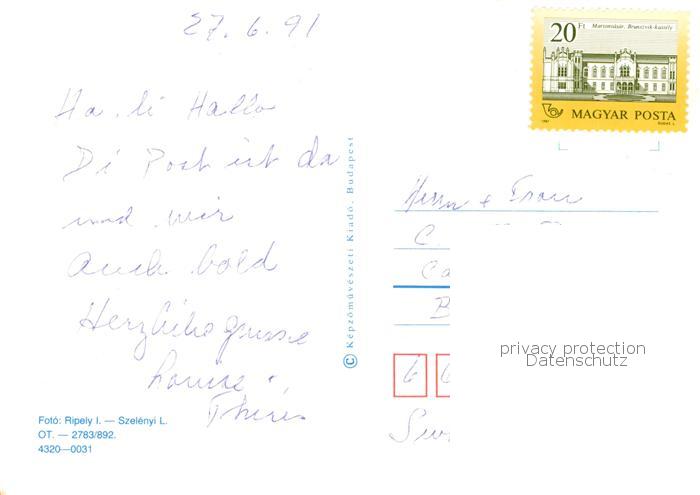 27. 6. 91
20 Ft
Martonvásár, Brunszvik-kastély
MAGYAR POSTA
1987
Ha li Hallo
Di Post ist da
und wir
Auch bald
Herzliche grüsse
Louise
Herrn + Frau
C.
Ca
B
6 6
© Képzőművészeti Kiadó, Budapest
privacy protection
Datenschutz
Fotó: Ripely I. — Szelényi L.
OT. — 2783/892.
4320—0031